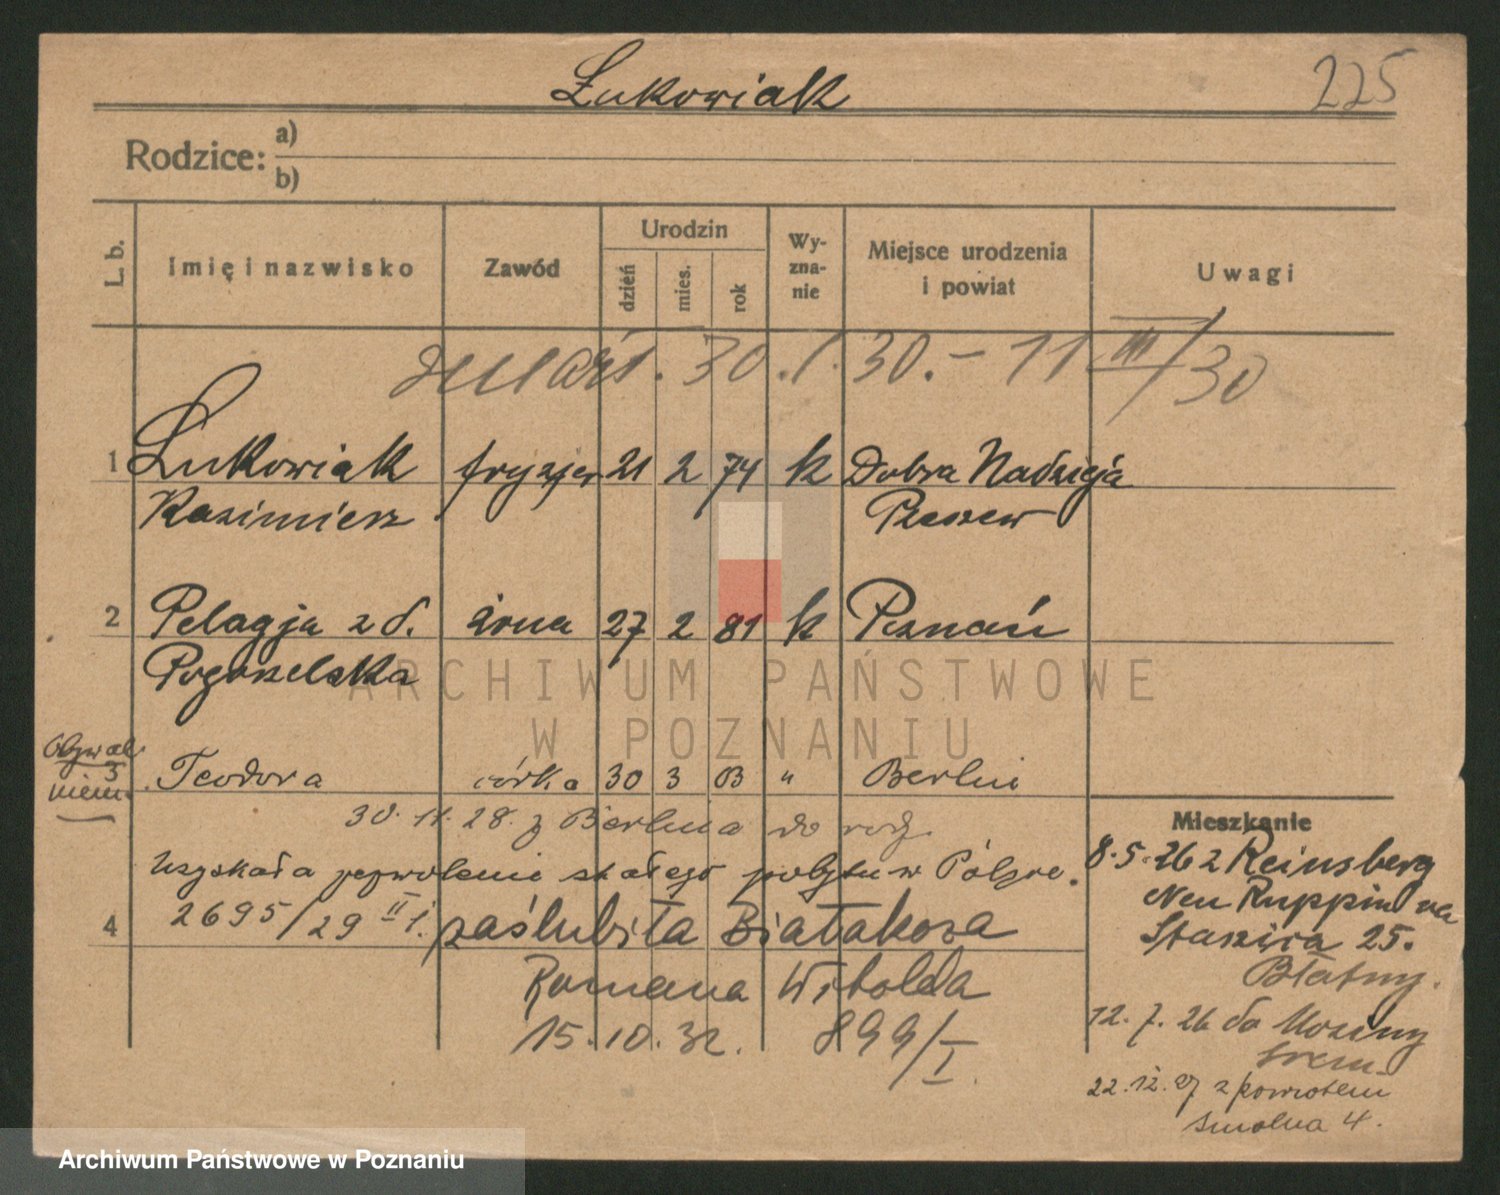 Łukowiak
225
Rodzice: a)
b)
L. b.
Imię i nazwisko
Zawód
Urodzin
dzień
mies.
rok
Wy-
zna-
nie
Miejsce urodzenia
i powiat
Uwagi
zmarł. 30.1.30. – 11 III/30
1 Łukowiak fryzjer 21 2 74 k Dobra Nadzieja
Kazimierz Pleszew
2 Pelagja z d. żona 27 2 81 k Poznań
Pogorzelska
ARCHIWUM PAŃSTWOWE
W POZNANIU
Obywat.
niem.
3 Teodora córka 30 3 03 " Berlin
30.11.28. z Berlina do rodz.
Uzyskała pozwolenie stałego pobytu w Polsce.
2695/29 II i.
4 zaślubiła Białakoza
Romana Witolda
15.10.32. 899/I.
Mieszkanie
8.5.26 z Reinsberg
Neu Ruppin na
Staszica 25.
12.7.26 do Mosiny
Śrem.
22.12.27 z powrotem
Smolna 4.
Archiwum Państwowe w Poznaniu